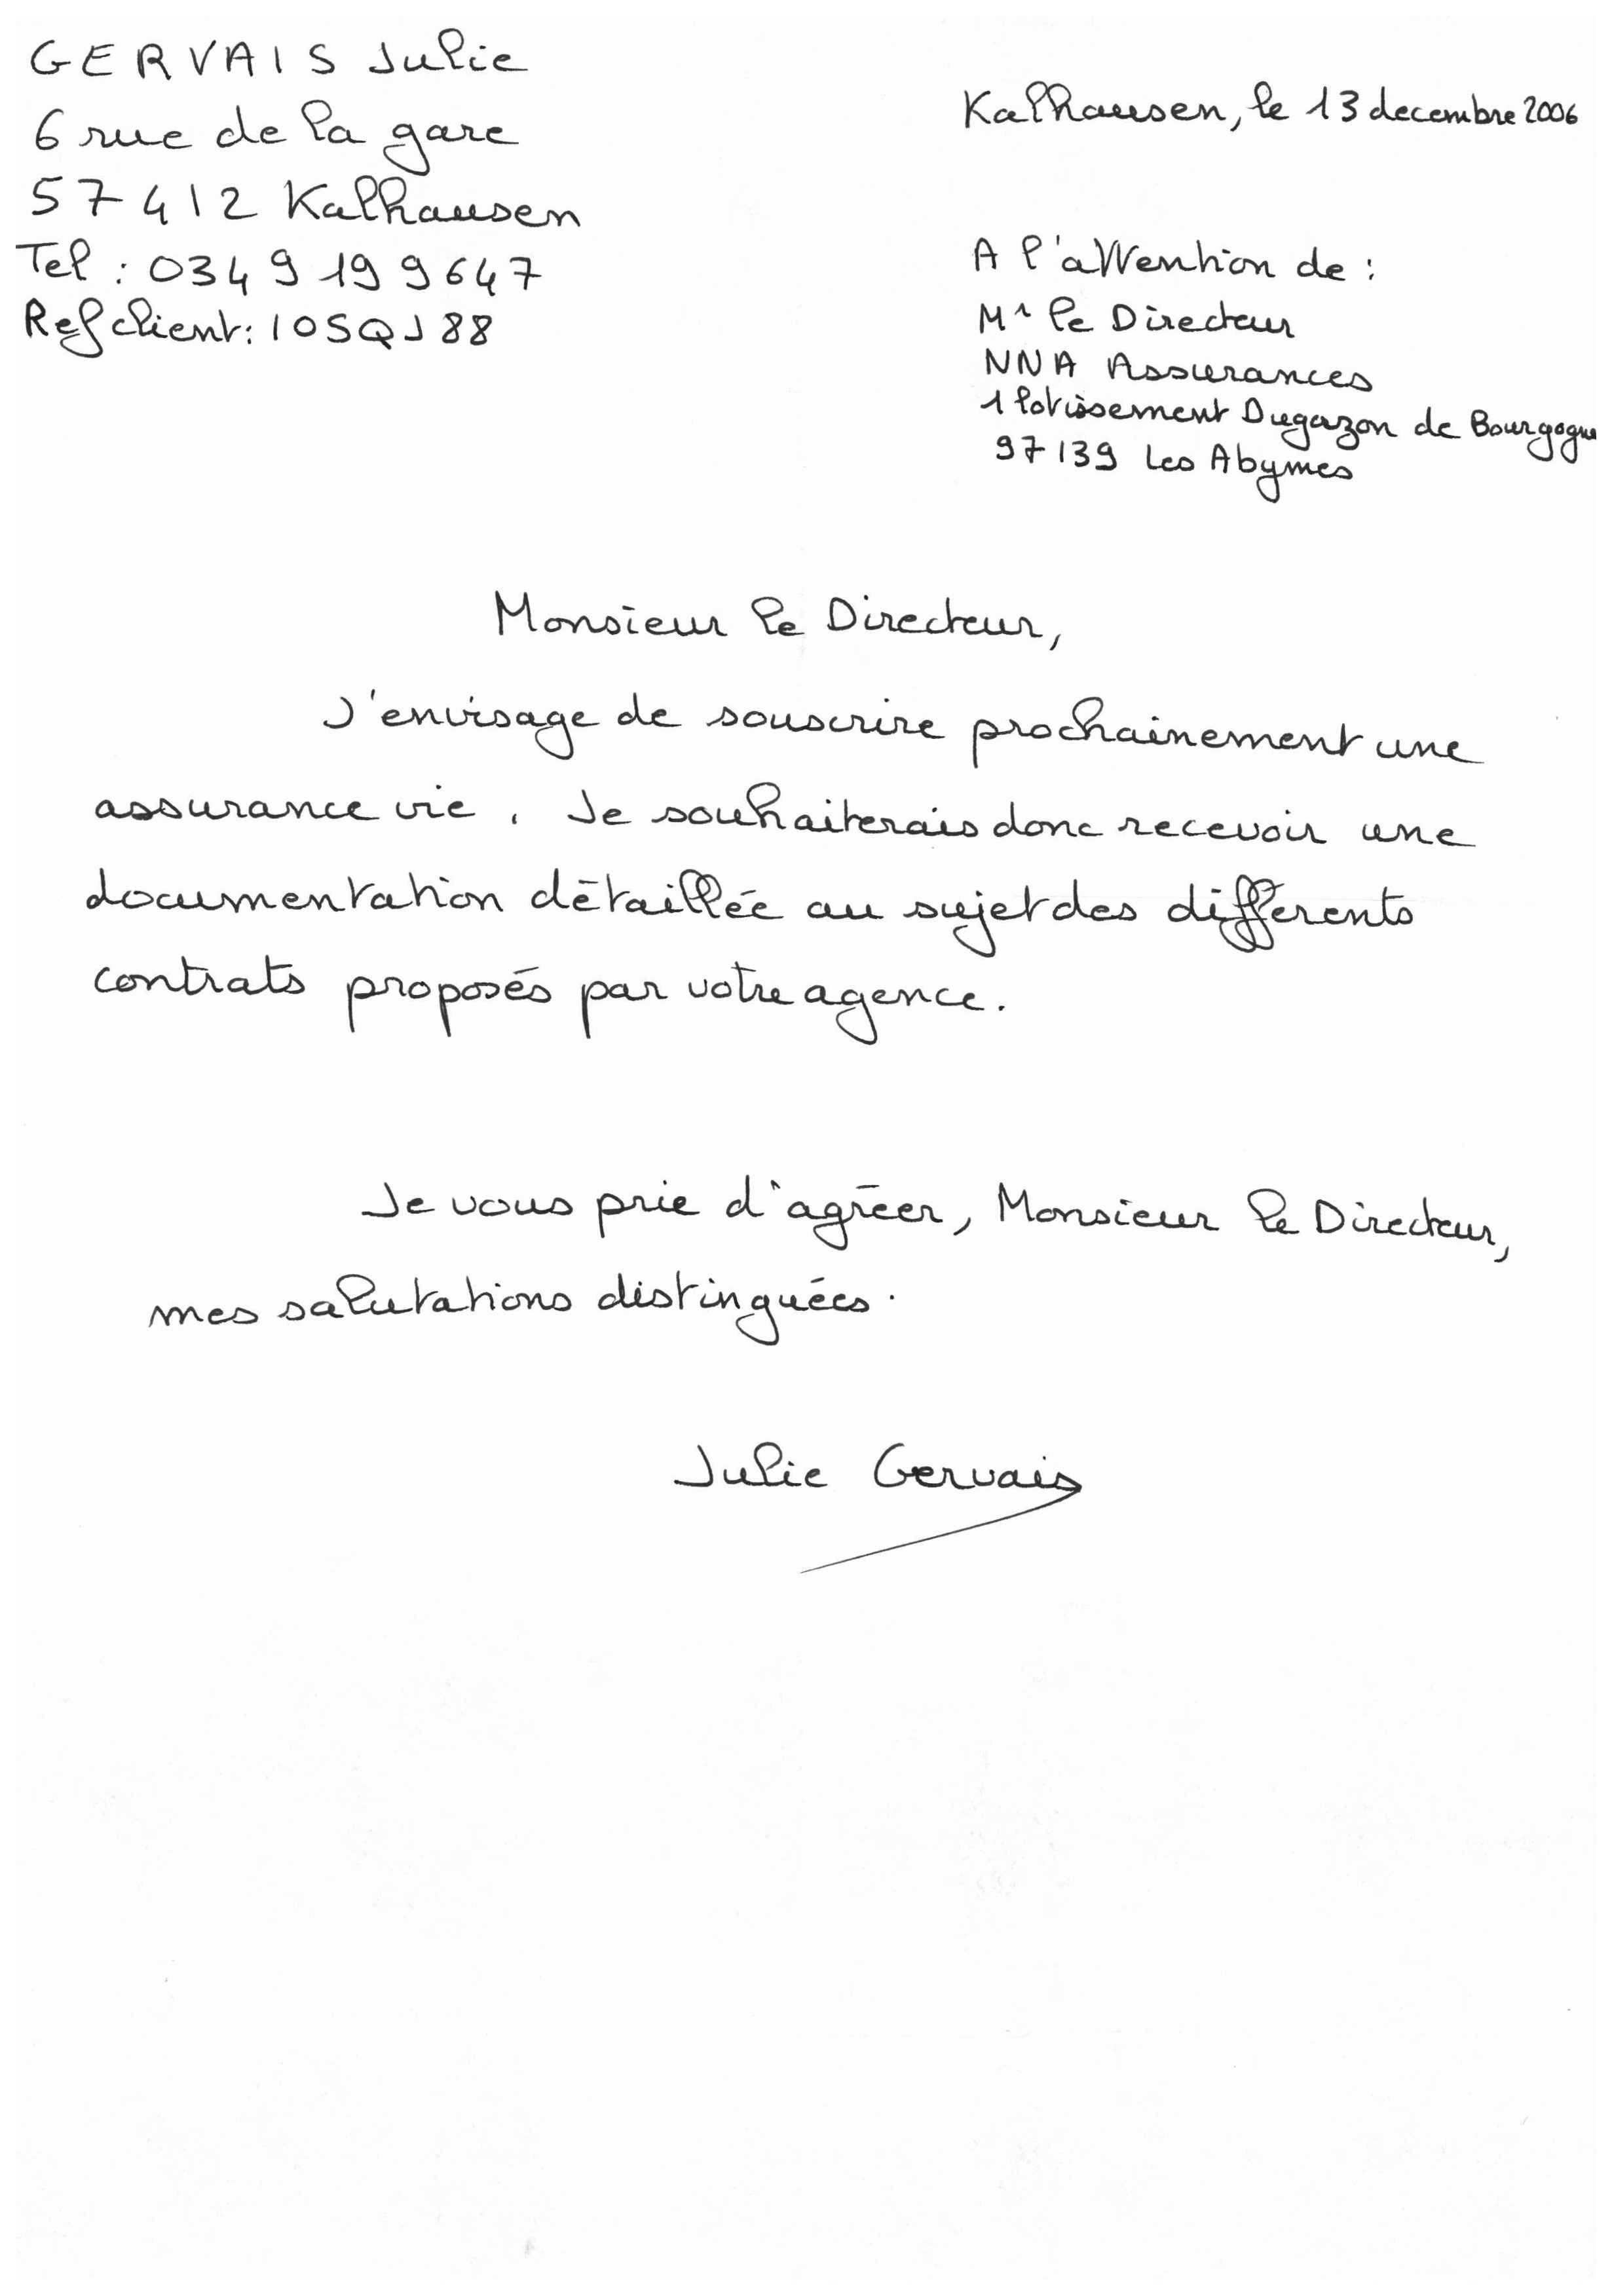 GERVAIS Julie
6 rue de la gare
57412 Kalhausen
Tel : 0349199647
Ref client : IOSQJ88
Kalhausen, le 13 decembre 2006
A l'attention de :
Mr le Directeur
NNA Assurances
1 lotissement Dugazon de Bourgogne
97139 Les Abymes
Monsieur le Directeur,
J'envisage de souscrire prochainement une
assurance vie. Je souhaiterais donc recevoir une
documentation détaillée au sujet des différents
contrats proposés par votre agence.
Je vous prie d'agréer, Monsieur le Directeur,
mes salutations distinguées.
Julie Gervais